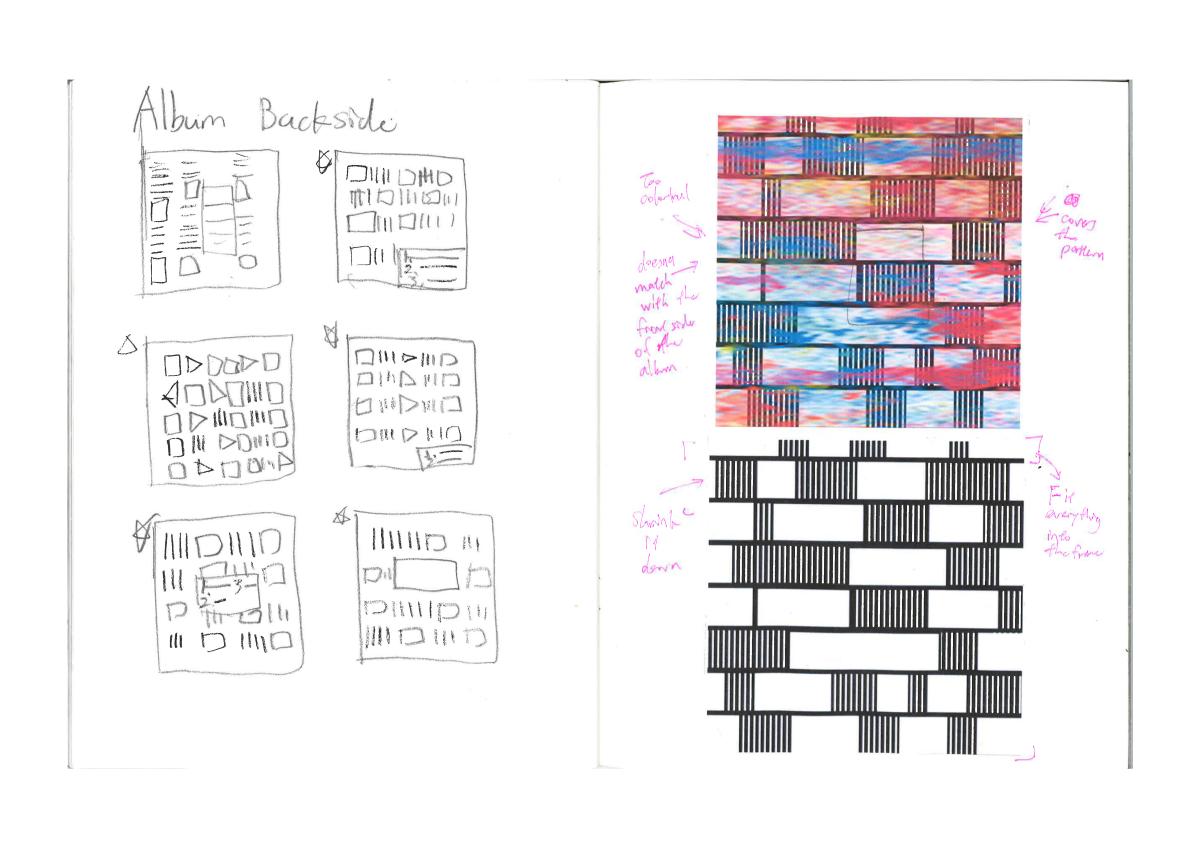 Album Backside
1
2
3.
1
1
3
2
Too
colorful
doesn
match
with the
front side
of the
album
covers
the
pattern
Shrink
it
down
Fit
everything
into
the frame